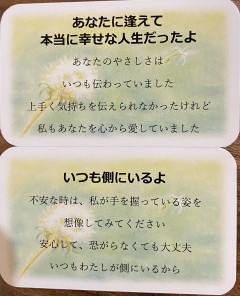 あなたに逢えて
本当に幸せな人生だったよ
あなたのやさしさは
いつも伝わっていました
上手く気持ちを伝えられなかったけれど
私もあなたを心から愛していました
いつも側にいるよ
不安な時は、私が手を握っている姿を
想像してみてください
安心して、恐がらなくても大丈夫
いつもわたしが側にいるから